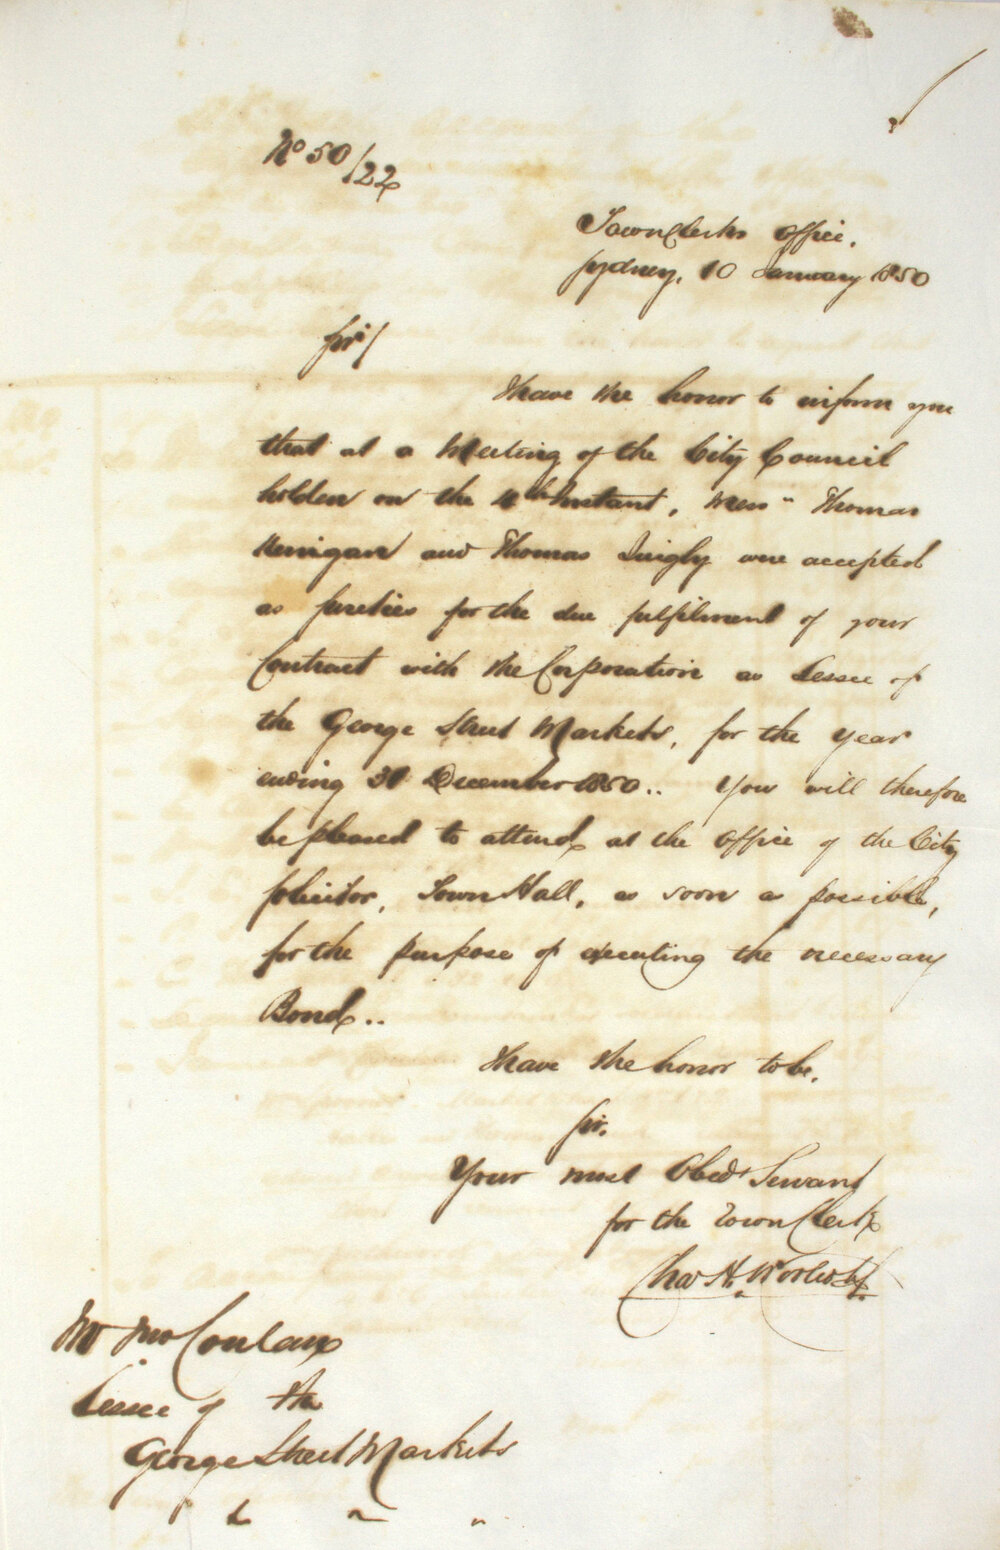 No 50/22
Town Clerks Office.
Sydney, 10 January 1850
Sir/
I have the honor to inform you
that at a Meeting of the City Council
holden on the 4th Instant, Mess" Thomas
Kerrigan and Thomas Quigly were accepted
as Sureties for the due fulfilment of your
Contract with the Corporation as Lessee of
the George Street Markets, for the year
ending 31 December 1850.. You will therefore
be pleased to attend at the Office of the City
Solicitor, Town Hall, as soon as possible,
for the purpose of executing the necessary
Bond..
I have the honor to be,
Sir.
Your most Obedt Servant
for the Town Clerk
Chas H. Woolcott
Mr Conlan
Lessee of the
George Street Markets